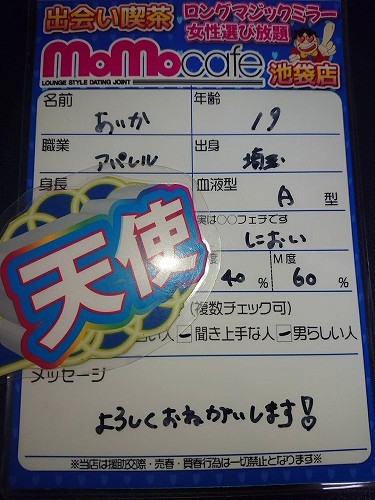 出会い喫茶 ロングマジックミラー
女性選び放題
MoMocafe 池袋店
LOUNGE STYLE DATING JOINT
名前 あいか 年齢 19
職業 アパレル 出身 埼玉
身長 血液型 A 型
実は○○フェチです
におい
天使
度 40 % M度 60 %
(複数チェック可)
い人 聞き上手な人 男らしい人
メッセージ
よろしくおねがいします!
※当店は援助交際・売春・買春行為は一切禁止となります※